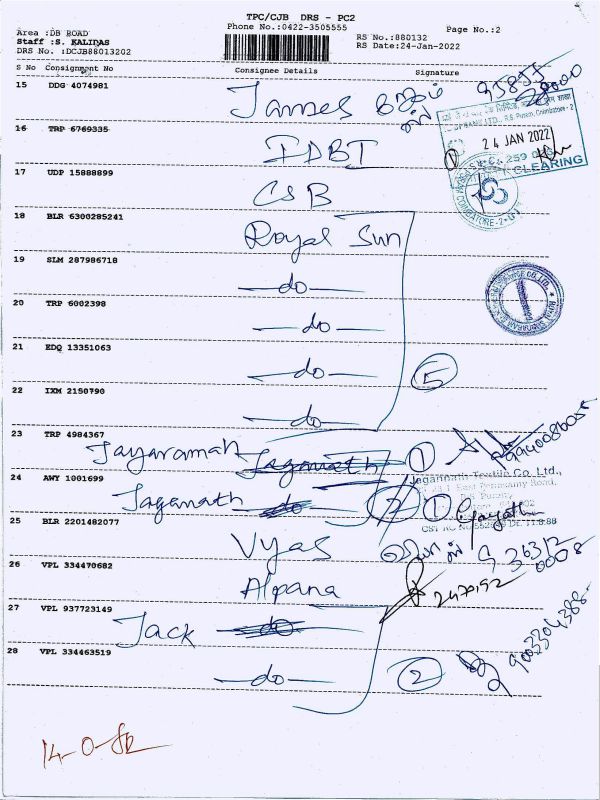 TPC/CJB DRS - PC2
Phone No.:0422-3505555
Page No.:2
Area :DB ROAD
Staff :S. KALIDAS
DRS No. :DCJB88013202
RS No.:880132
RS Date:24-Jan-2022
S No Consignment No Consignee Details Signature
15 DDG 4074981 James
16 TRP 6769335 IDBI
24 JAN 2022
CLEARING
17 UDP 15888899 CSB
COIMBATORE-2
18 BLR 6300285241 Royal Sun
19 SLM 287986718 do
20 TRP 6002398 do
21 EDQ 13351063 do 5
22 IXM 2150790 do
23 TRP 4984367 Jayaraman Jaganath 1
24 AWY 1001699 Jaganath do 2 1
Jagannath Textile Co. Ltd.,
25 BLR 2201482077 Vyas
26 VPL 334470682 Alpana
27 VPL 937723149 Jack do
28 VPL 334463519 do 2 9003304388